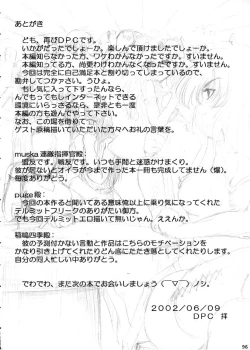 あとがき
ども、再びDPCです。
いかがだったでしょーか。楽しんで頂けましたでしょーか。
本編知らなかった方、ワケわかんなかったですか。すいません。
本編知ってる方、尚更わかんなくなったですか。すいません。
今回は完全に自己満足本と割り切ってしまっているので、
勘弁して下さい。うひょ。
もし気に入って下すったんなら、
んでもってもしインターネットできる
環境にいらっさるなら、是非とも一度
本編の方も遊んでやって下さい。
なお、この場を借りて
ゲスト原稿描いていただいた方々へお礼の言葉を。
muska連隊指揮官殿:
盟友です。戦友です。いつも手間と迷惑かけまくり。
彼が居ないとオイラが今まで作った本一冊も完成してません(爆)。
毎度ありがとう。
puke殿:
今回の本作ると聞いてある意味俺以上に乗り気になってくれた
デルミットフリークのありがたい御方。
でも今回デルミットエロ描いて無いじゃん。ええんか。
稲嶋四季殿:
彼の予測付かない言動と作品はこちらのモチベーションを
かなり引き上げてくれたりどん底にたたき落としてくれたりします。
自分の同人忙しい中ありがとう。
でわでわ、また次の本でお会いしましょう(￣▽￣)ノシ。
2002/06/09
DPC 拝
96